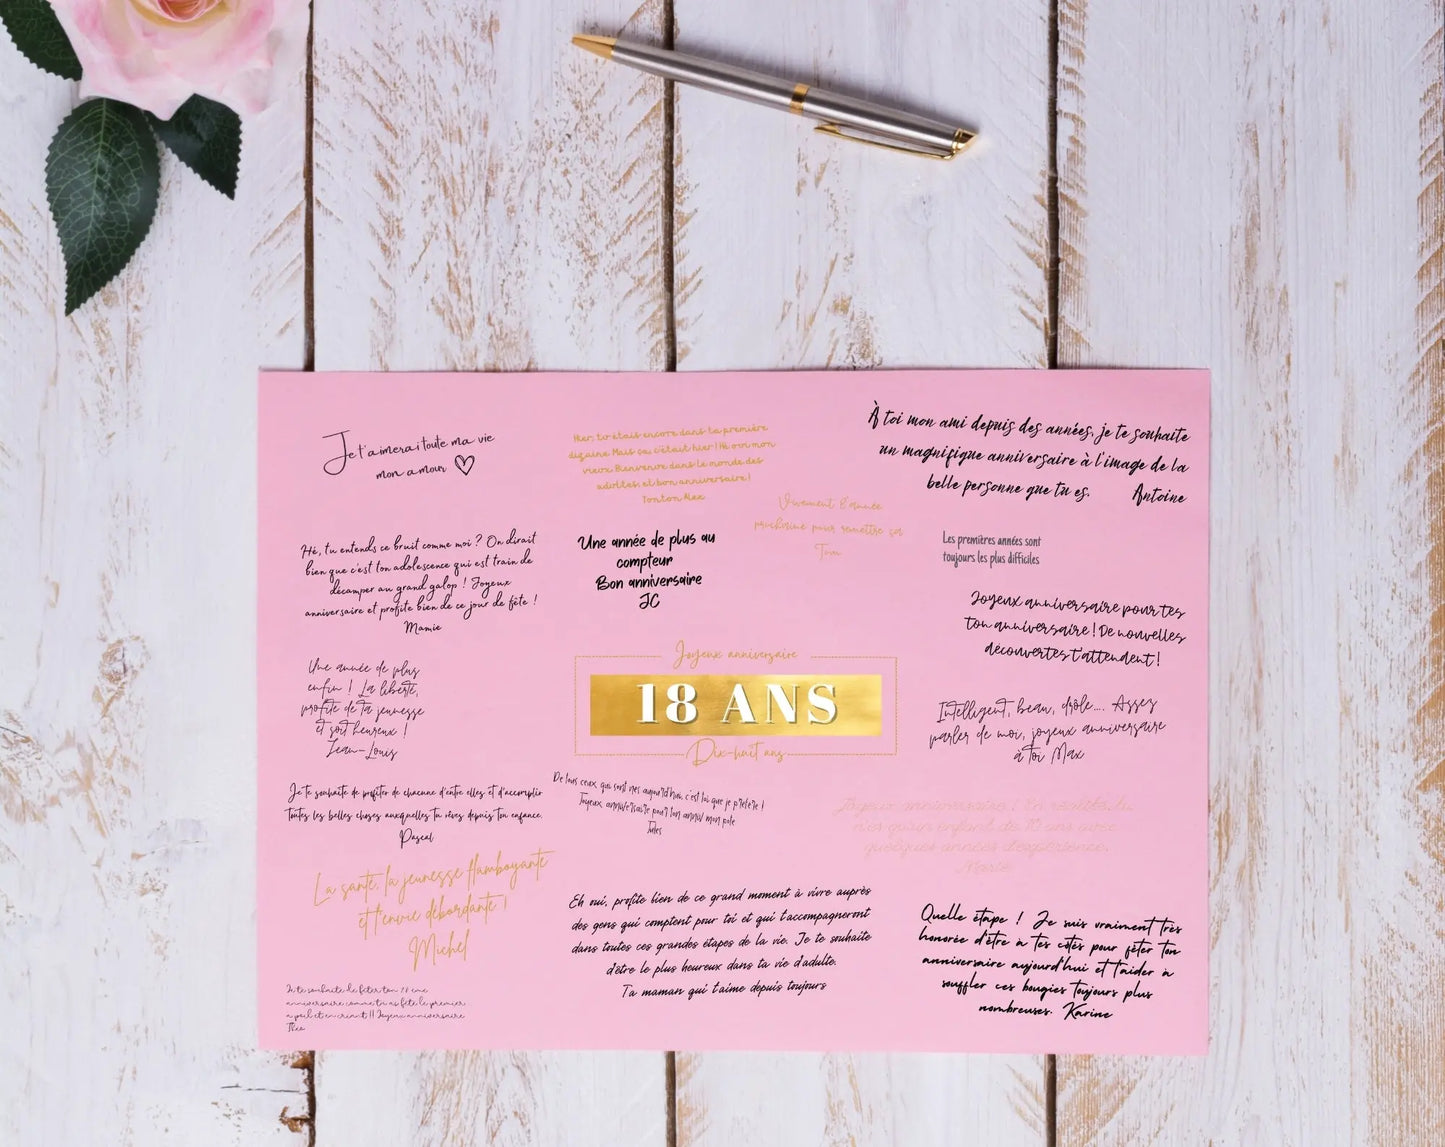 Je t'aimerai toute ma vie
mon amour
Hier, tu étais encore dans ta première
dizaine. Mais ça, c'était hier ! Hé oui mon
vieux. Bienvenue dans le monde des
adultes, et bon anniversaire !
Tonton Alex
À toi mon ami depuis des années, je te souhaite
un magnifique anniversaire à l'image de la
belle personne que tu es. Antoine
Vivement l'année
prochaine pour remettre ça
Tom
Hé, tu entends ce bruit comme moi ? On dirait
bien que c'est ton adolescence qui est train de
décamper au grand galop ! Joyeux
anniversaire et profite bien de ce jour de fête !
Mamie
Une année de plus au
compteur
Bon anniversaire
JC
Les premières années sont
toujours les plus difficiles
Joyeux anniversaire pour tes
ton anniversaire ! De nouvelles
découvertes t'attendent !
Une année de plus
enfin ! La liberté,
profite de ta jeunesse
et soit heureux !
Jean-Louis
Joyeux anniversaire
18 ANS
Dix-huit ans
Intelligent, beau, drôle.... Assez
parler de moi, joyeux anniversaire
à toi Max
Je te souhaite de profiter de chacune d'entre elles et d'accomplir
toutes les belles choses auxquelles tu rêves depuis ton enfance.
Pascal
De tous ceux qui sont nés aujourd'hui, c'est toi que je préfère !
Joyeux anniversaire pour ton anniv mon pote
Jules
Joyeux anniversaire ! En réalité, tu
n'es qu'un enfant de 10 ans avec
quelques années d'expérience.
La santé, la jeunesse flamboyante
et t'envie débordante !
Michel
Eh oui, profite bien de ce grand moment à vivre auprès
des gens qui comptent pour toi et qui t'accompagneront
dans toutes ces grandes étapes de la vie. Je te souhaite
d'être le plus heureux dans ta vie d'adulte.
Ta maman qui t'aime depuis toujours
Quelle étape ! Je suis vraiment très
honorée d'être à tes côtés pour fêter ton
anniversaire aujourd'hui et t'aider à
souffler ces bougies toujours plus
nombreuses. Karine
Je te souhaite de fêter ton
anniversaire comme tu as fêté le premier
à poil et en criant !! Joyeux anniversaire
Théo